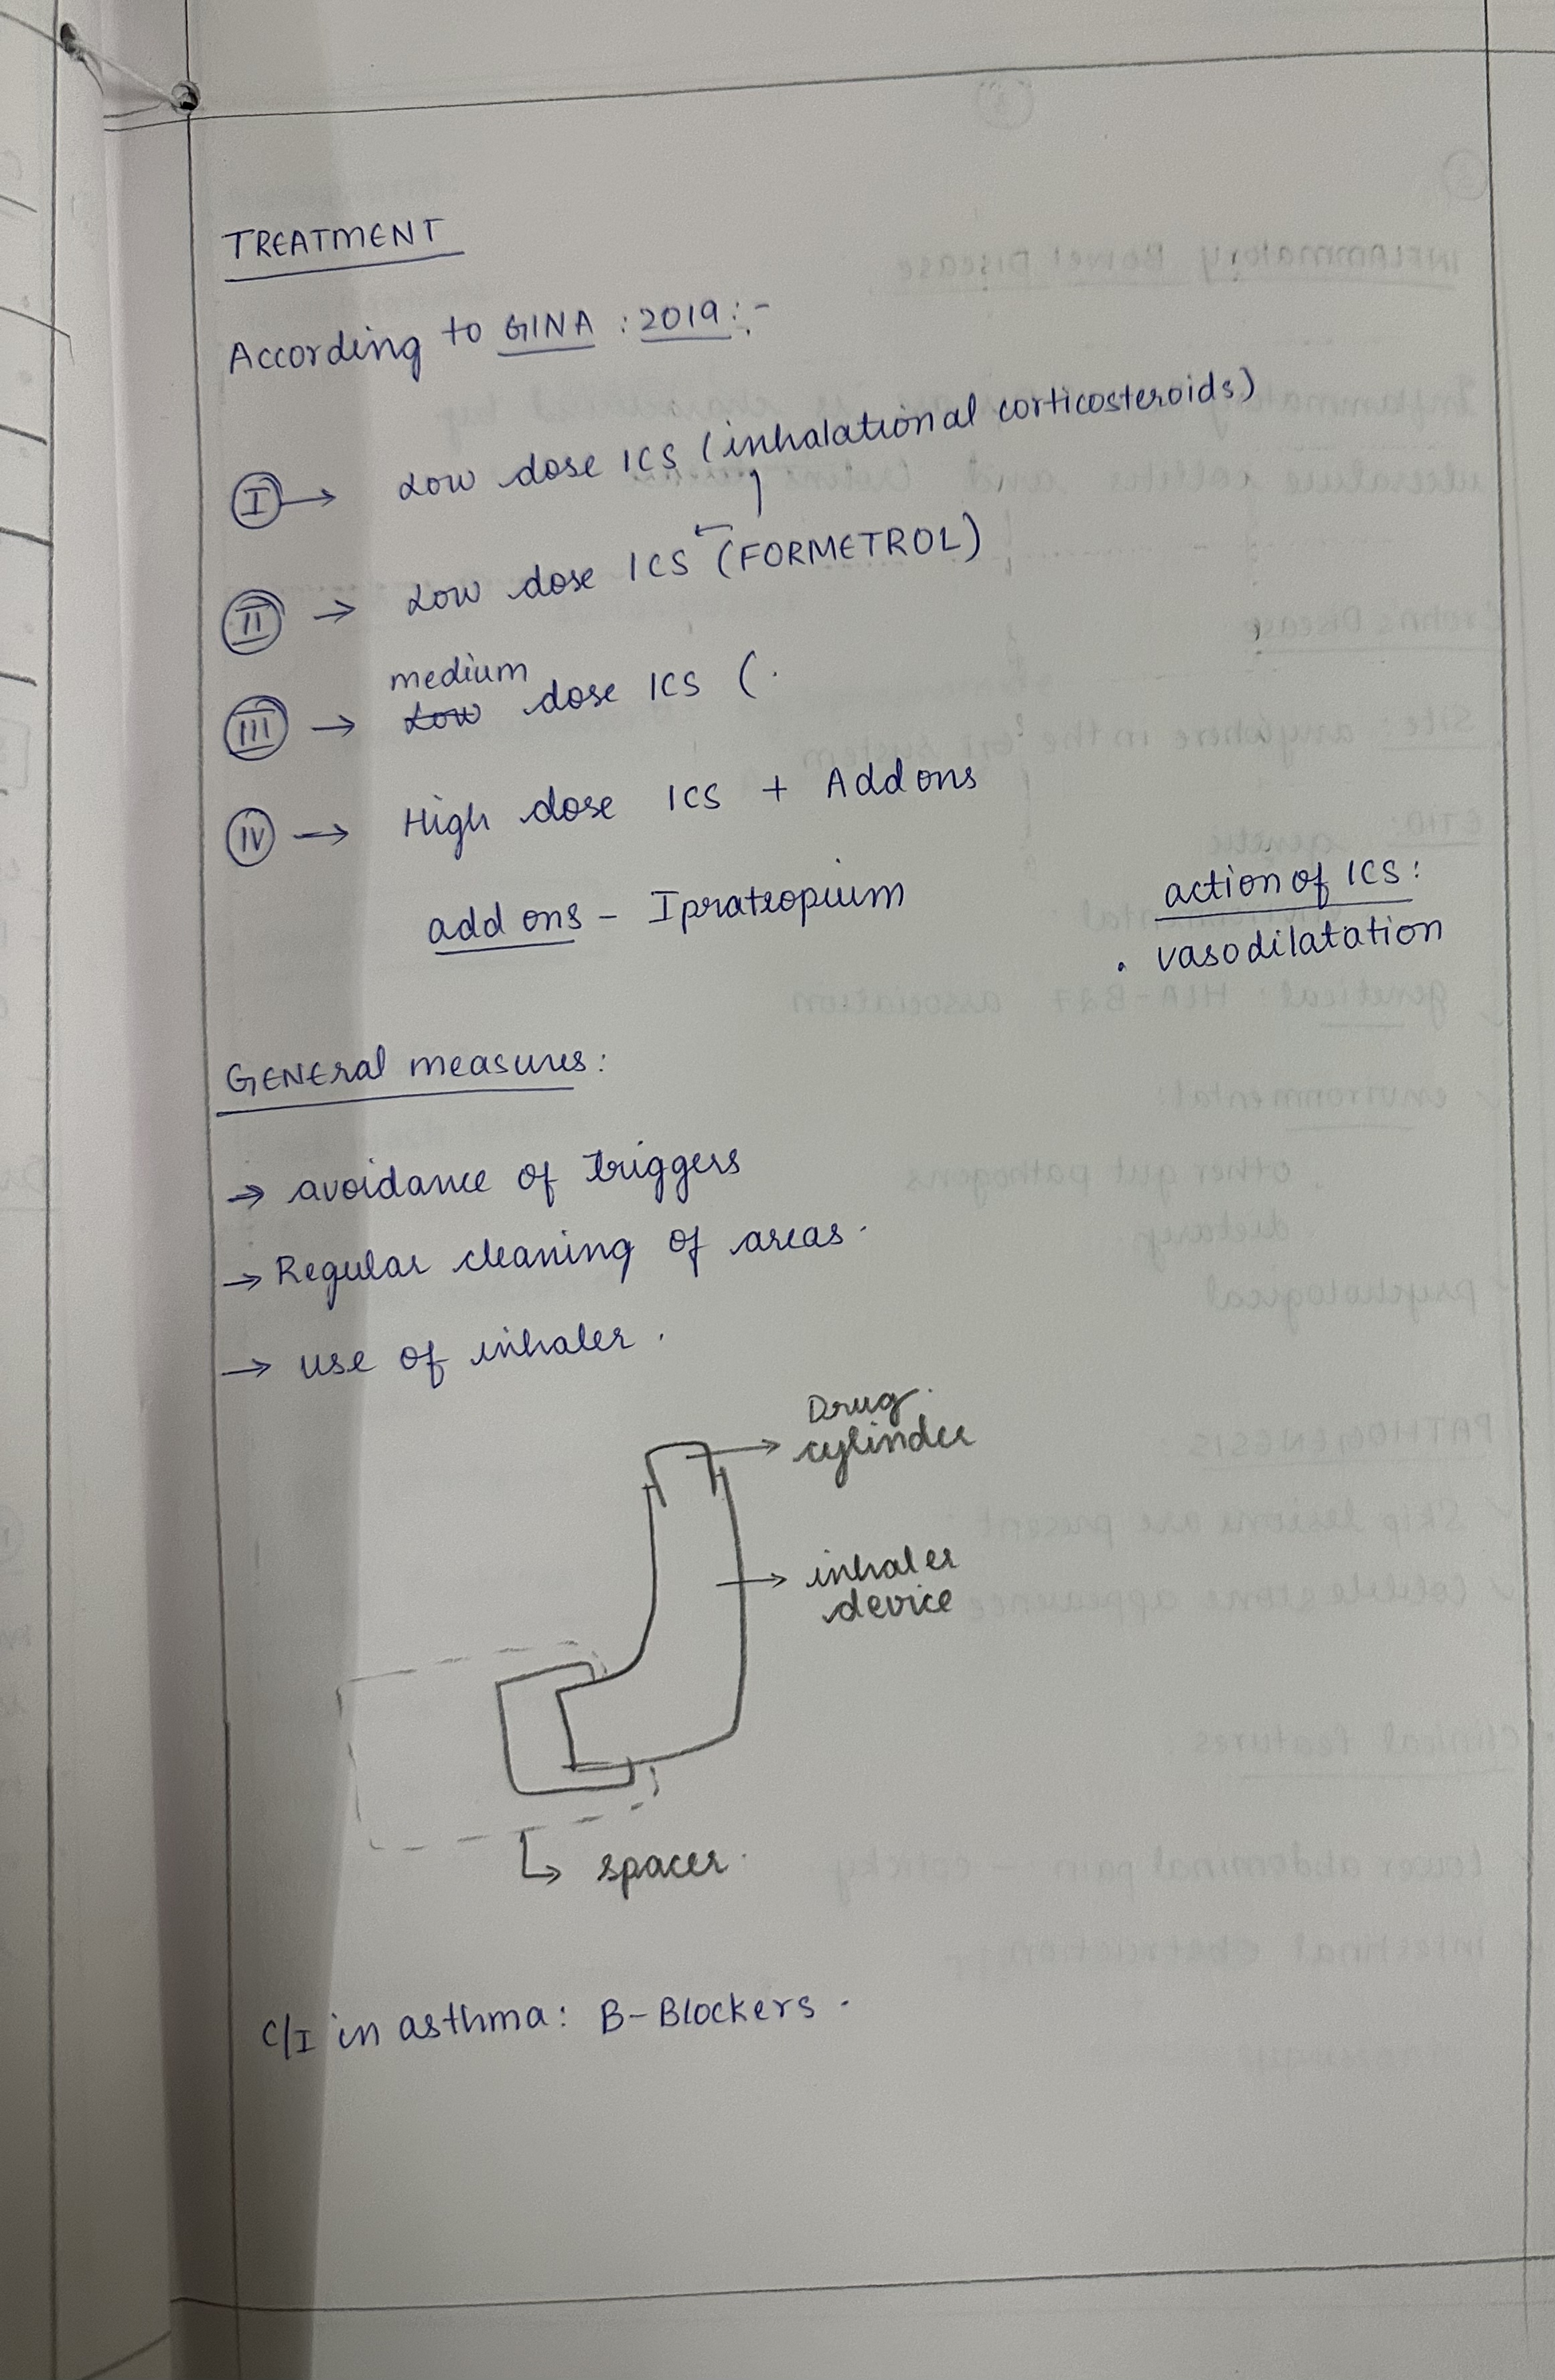 TREATMENT
According to GINA : 2019 :-
I → Low dose ICS (inhalational corticosteroids)
II → Low dose ICS (FORMETROL)
medium
III → Low dose ICS (.
IV → High dose ICS + Add ons
add ons - Iprateopium
action of ICS :
. vasodilatation
GENERal measures :
→ avoidance of triggers
→ Regular cleaning of areas .
→ use of inhaler .
Drug
cylinder
inhaler
device
spacer .
C/I in asthma : B-Blockers .